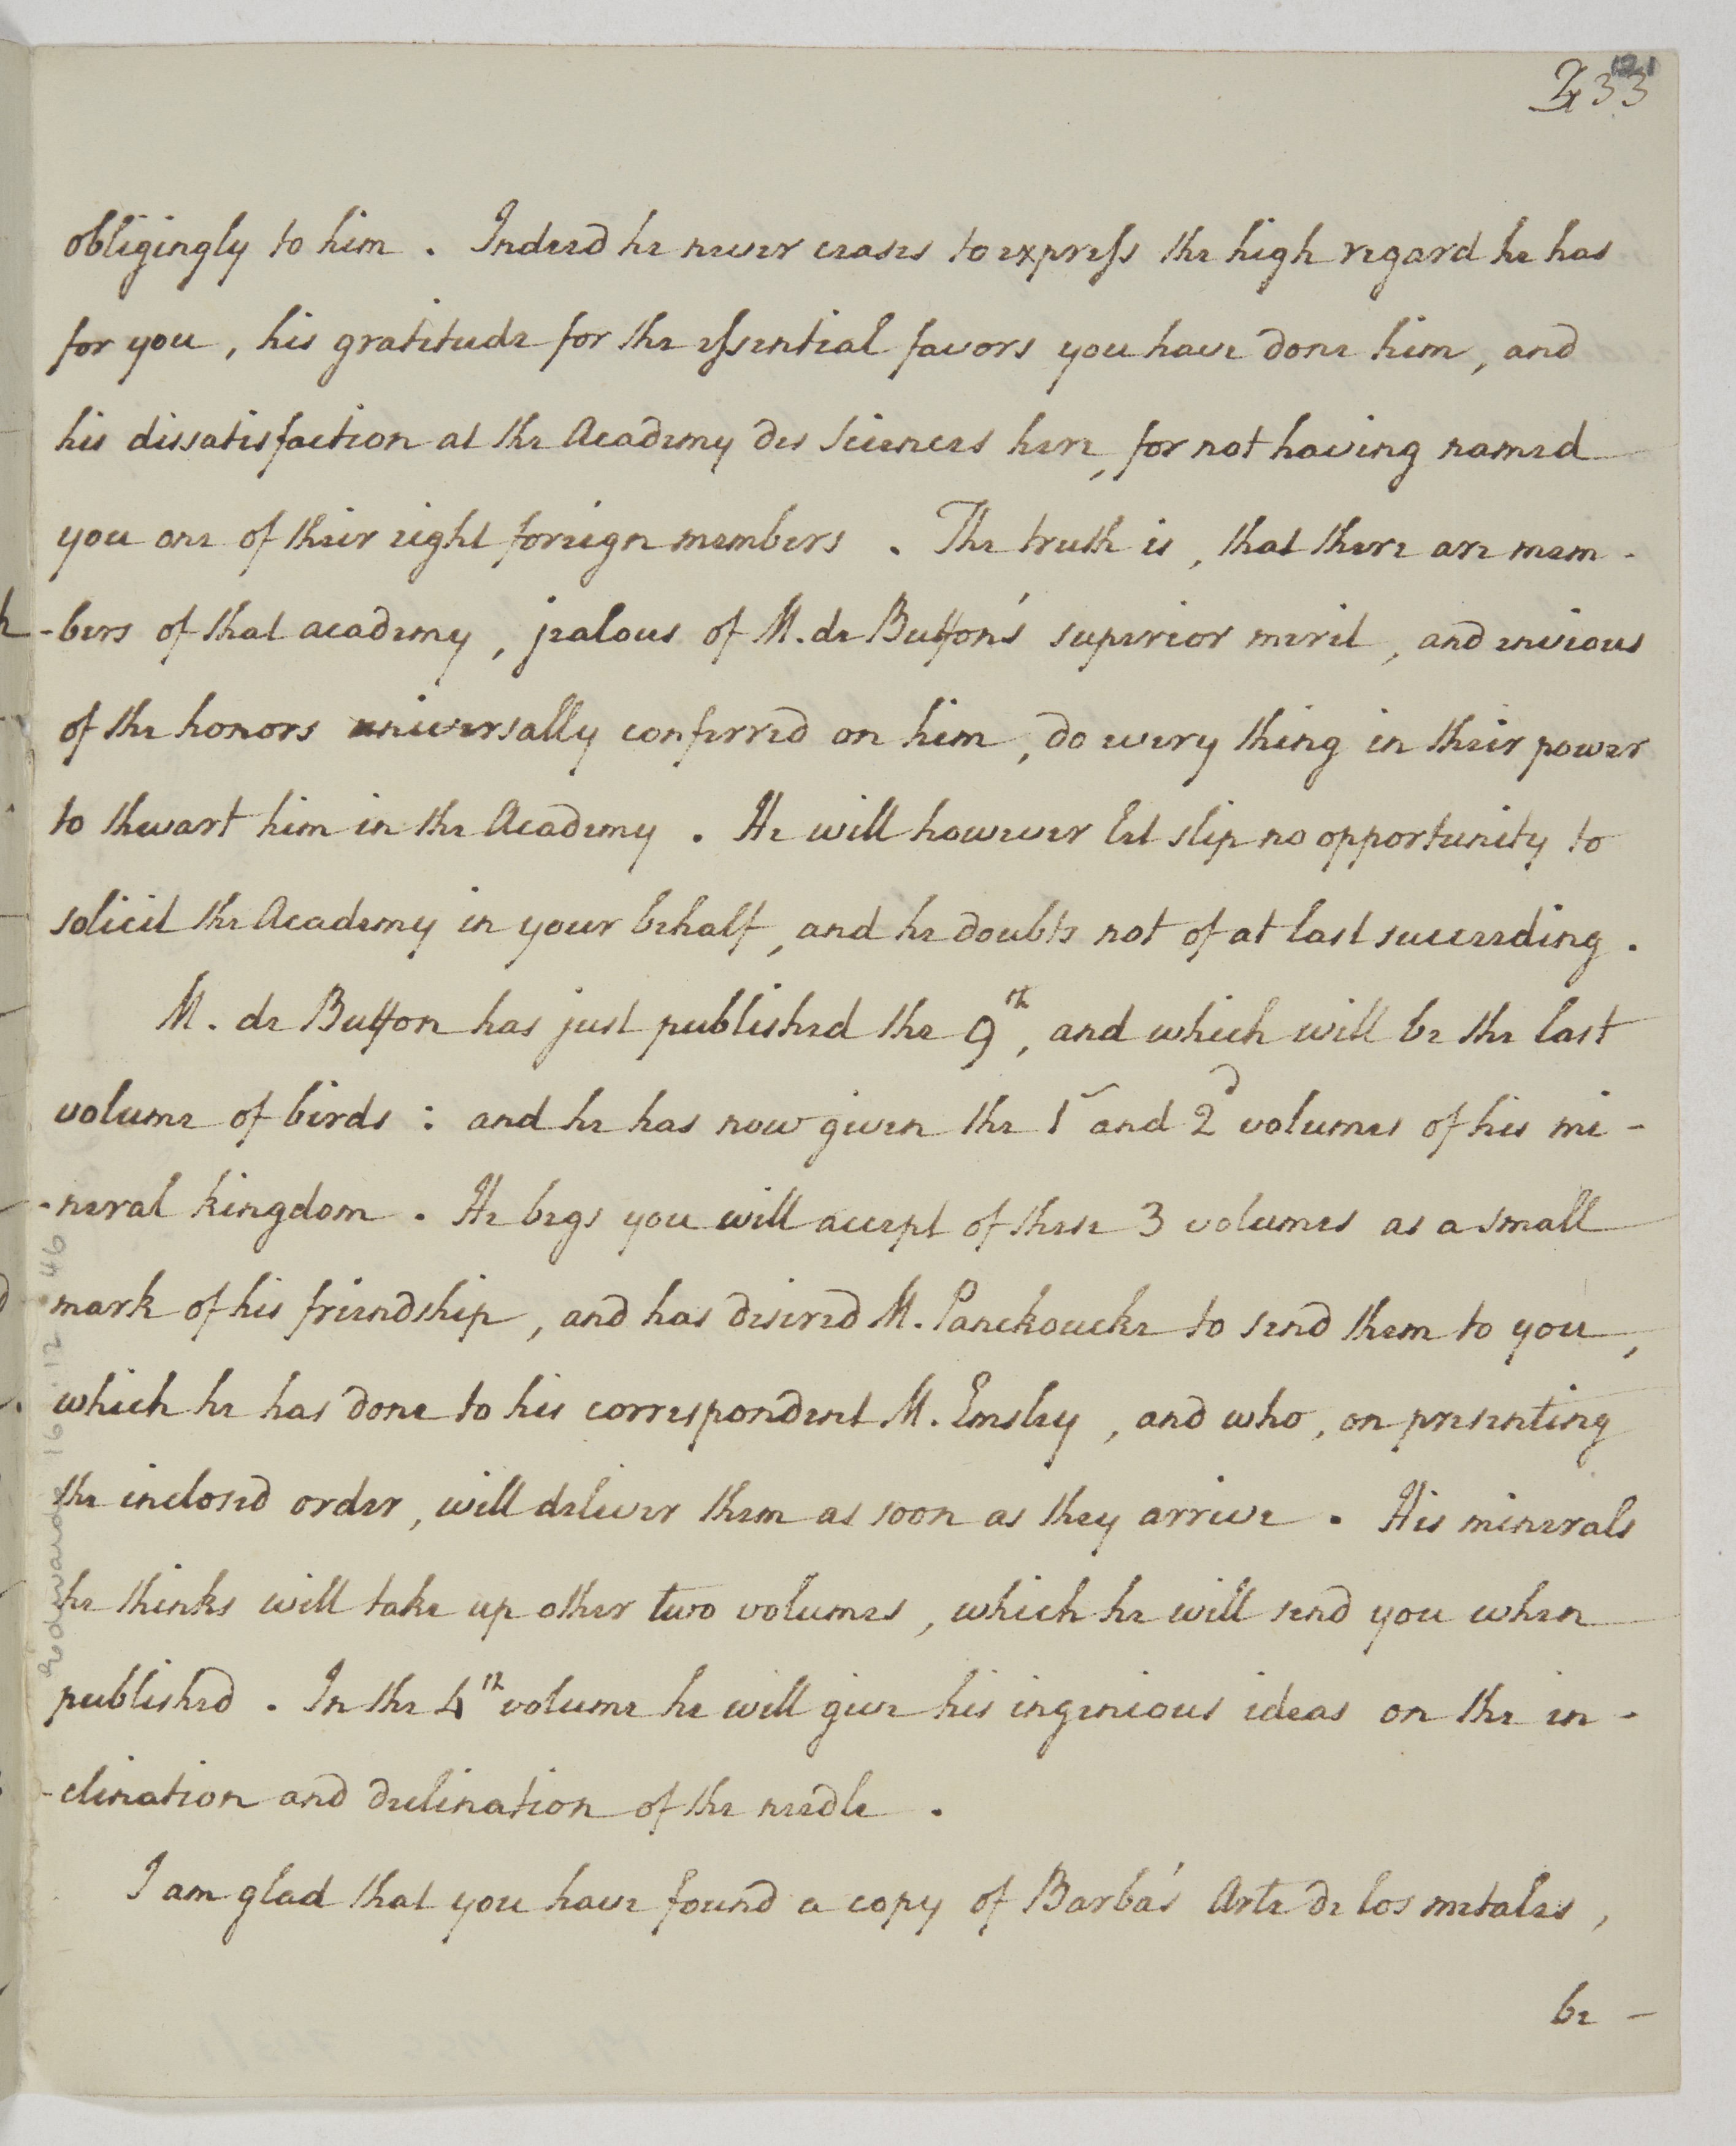 233
121
obligingly to him . Indeed he never ceases to express the high regard he has
for you , his gratitude for the essential favors you have done him , and
his dissatisfaction at the Academy des Sciences here , for not having named
you one of their eight foreign members . The truth is , that there are mem -
-bers of that academy , jealous of M. de Buffon's superior merit , and envious
of the honors universally conferred on him , do every thing in their power
to thwart him in the Academy . He will however let slip no opportunity to
solicit the Academy in your behalf , and he doubts not of at last succeeding .
M. de Buffon has just published the 9th , and which will be the last
volume of birds : and he has now given the 1 and 2d volumes of his mi -
-neral kingdom . He begs you will accept of these 3 volumes as a small
mark of his friendship , and has desired M. Panckoucke to send them to you ,
which he has done to his correspondent M. Emsley , and who , on presenting
the inclosed order , will deliver them as soon as they arrive . His minerals
he thinks will take up other two volumes , which he will send you when
published . In the 4th volume he will give his ingenious ideas on the in -
-clination and declination of the needle .
I am glad that you have found a copy of Barba's Arte de los metales ,
be -
Edwards 16.12.46